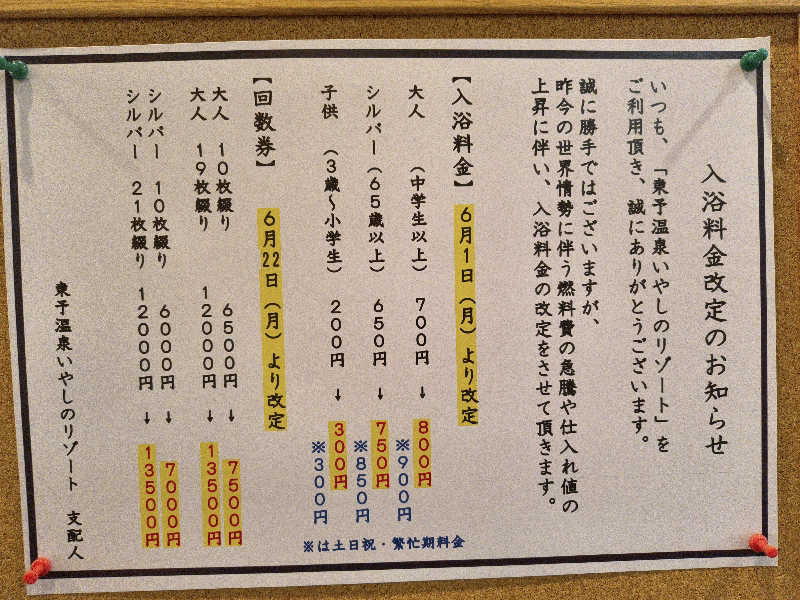 入浴料金改定のお知らせ
いつも、「東予温泉いやしのリゾート」を
ご利用頂き、誠にありがとうございます。
誠に勝手ではございますが、
昨今の世界情勢に伴う燃料費の急騰や仕入れ値の
上昇に伴い、入浴料金の改定をさせて頂きます。
【入浴料金】 6月1日(月)より改定
大人 (中学生以上) 700円 → 800円 ※900円
シルバー(65歳以上) 650円 → 750円 ※850円
子供 (3歳~小学生) 200円 → 300円 ※300円
※は土日祝・繁忙期料金
【回数券】 6月22日(月)より改定
大人 10枚綴り 6500円 → 7500円
大人 19枚綴り 12000円 → 13500円
シルバー 10枚綴り 6000円 → 7000円
シルバー 21枚綴り 12000円 → 13500円
東予温泉いやしのリゾート 支配人